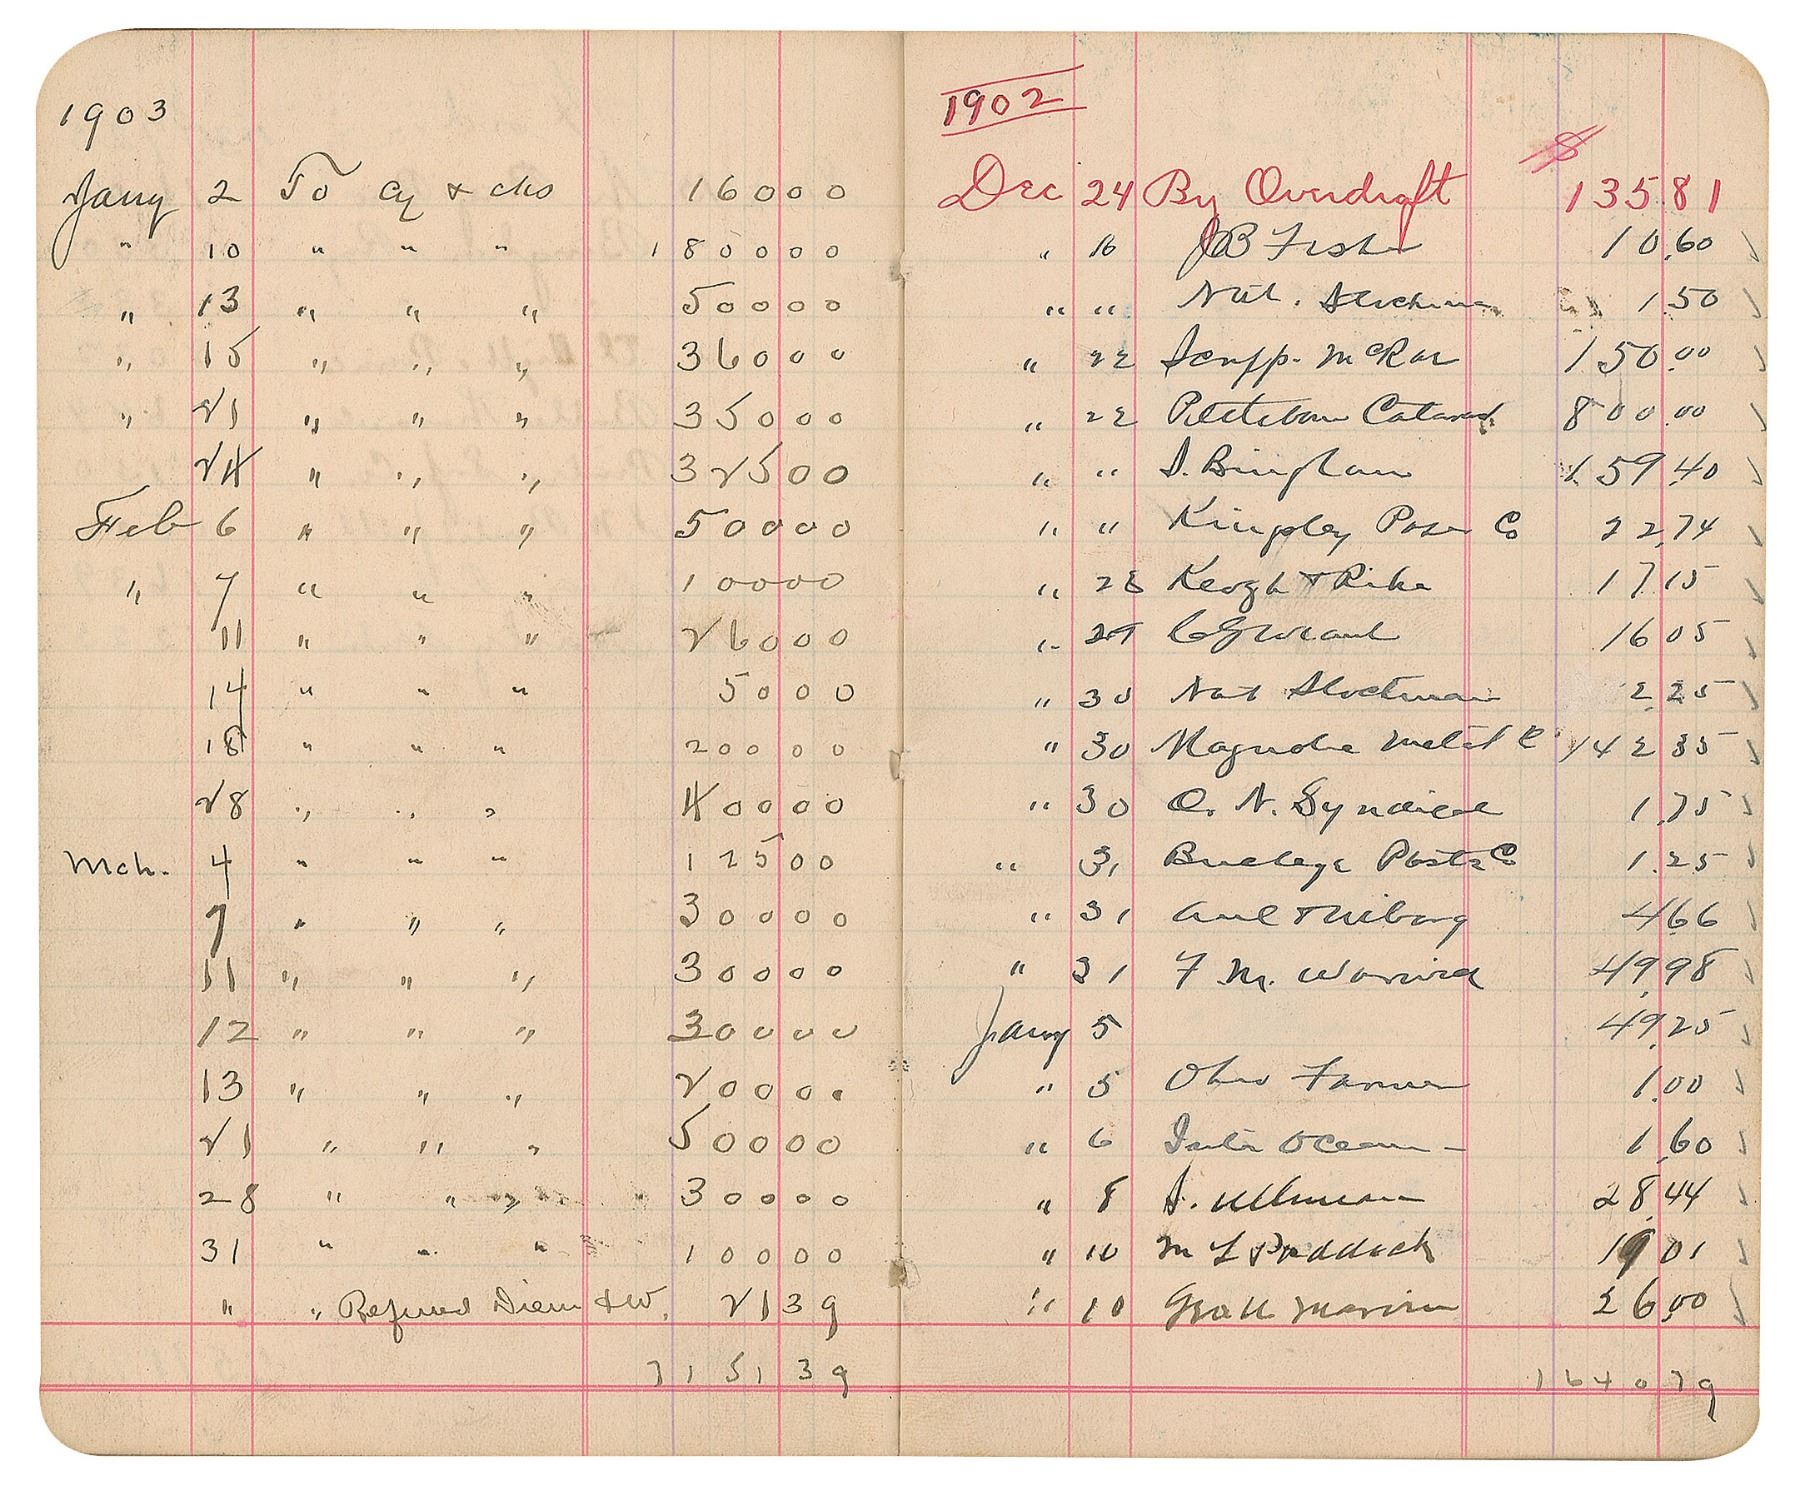 1903
Jany 2 To Cy & chs 160 00
" 10 " " " 1 800 00
" 13 " " " 500 00
" 15 " " " 360 00
" 21 " " " 350 00
" 24 " " " 325 00
Feb 6 " " " 500 00
" 7 " " " 100 00
11 " " " 260 00
14 " " " 50 00
18 " " " 200 00
28 " " " 400 00
Mch. 4 " " " 125 00
7 " " " 300 00
11 " " " 300 00
12 " " " 300 00
13 " " " 200 00
21 " " " 500 00
28 " " " 300 00
31 " " " 100 00
" " Refund Diem & W. 21 39
7151 39
1902
$
Dec 24 By Overdraft 135 81
" 16 JB Fisher 10.60
" " Nat. Stockman 1 50
" 22 Scripp. McRae 150.00
" 22 Cataract 800.00
" " S. Bingham 159.40
" " Kingsley Paper Co 22.74
" Keogh & Rike 17 15
" 29 16 05
" 30 Nat Stockman 2.25
" 30 Magnolia Metal C 142 35
" 30 O. N. Syndicate 1.75
" 31 Buckeye Co 1.25
" 31 Ault & Wiborg 4.66
" 31 F. M. 49.98
Jany 5 49.25
" 5 Ohio Farmer 1.00
" 6 Inter Ocean - 1.60
" 8 S. Ullman 28.44
" 10 M L Paddock 19 01
" 10 26.00
1640 79